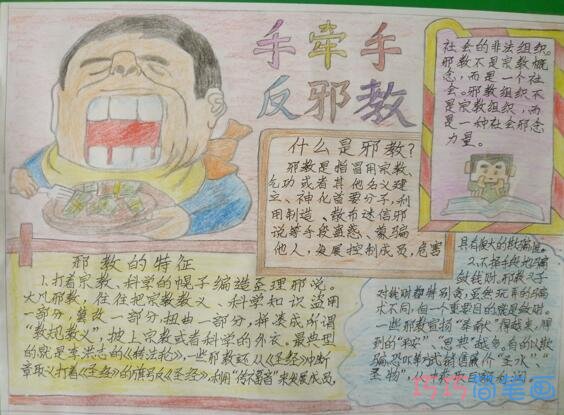 手牵手
反邪教
社会的非法组织。
邪教不是宗教概
念，而是一个社
会。邪教组织不
是宗教组织，而
是一种社会邪恶
力量。
什么是邪教？
邪教是指冒用宗教、
气功或者其他名义建
立、神化首要分子，利
用制造、散布迷信邪
说等手段蛊惑、蒙骗
他人，发展控制成员，危害
邪教的特征
1、打着宗教、科学的幌子编造歪理邪说。
大凡邪教，往往把宗教教义、科学知识盗用
一部分，篡改一部分，扭曲一部分，拼凑成所谓
“教规教义”，披上宗教或者科学的外衣。最典型
的就是李洪志的《转法轮》，一些邪教还从《圣经》中断
章取义打着《圣经》的旗号反《圣经》，利用“传福音”来发展成员，
具有很大的欺骗性。
2、不择手段地骗
敛钱财。邪教头子
对钱财都特别贪，虽然玩弄的骗
术不同，但一个重要目的就是敛财。
一些邪教宣扬
的“平安”
圣物”，
巧巧简笔画